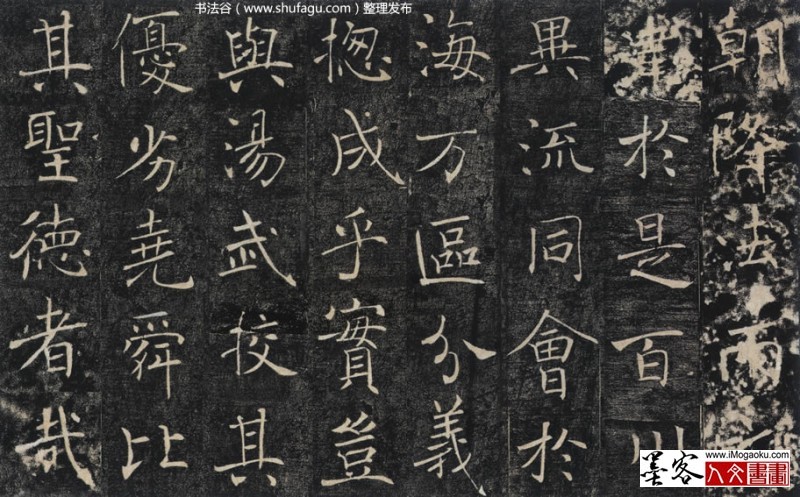 书法谷(www.shufagu.com)整理发布
朝降法雨之
澤於是百川
異流同會於
海万區分義
揔成乎實豈
與湯武挍其
優劣堯舜比
其聖德者哉
www.iMogaoku.com
墨客
人文書畫